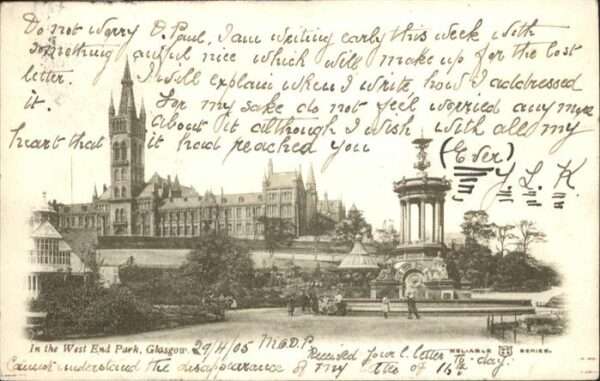 Do not worry D. Paul, I am writing early this week with
something awful nice which will make up for the lost
letter. I will explain when I write, how I addressed
it. For my sake do not feel worried any more
about it although I wish with all my
heart that it had reached you
(Ever)
In the West End Park, Glasgow.
29/4/05
Received your l. letter to-day.
RELIABLE SERIES.
Cannot understand the disappearance of my letter of 16th